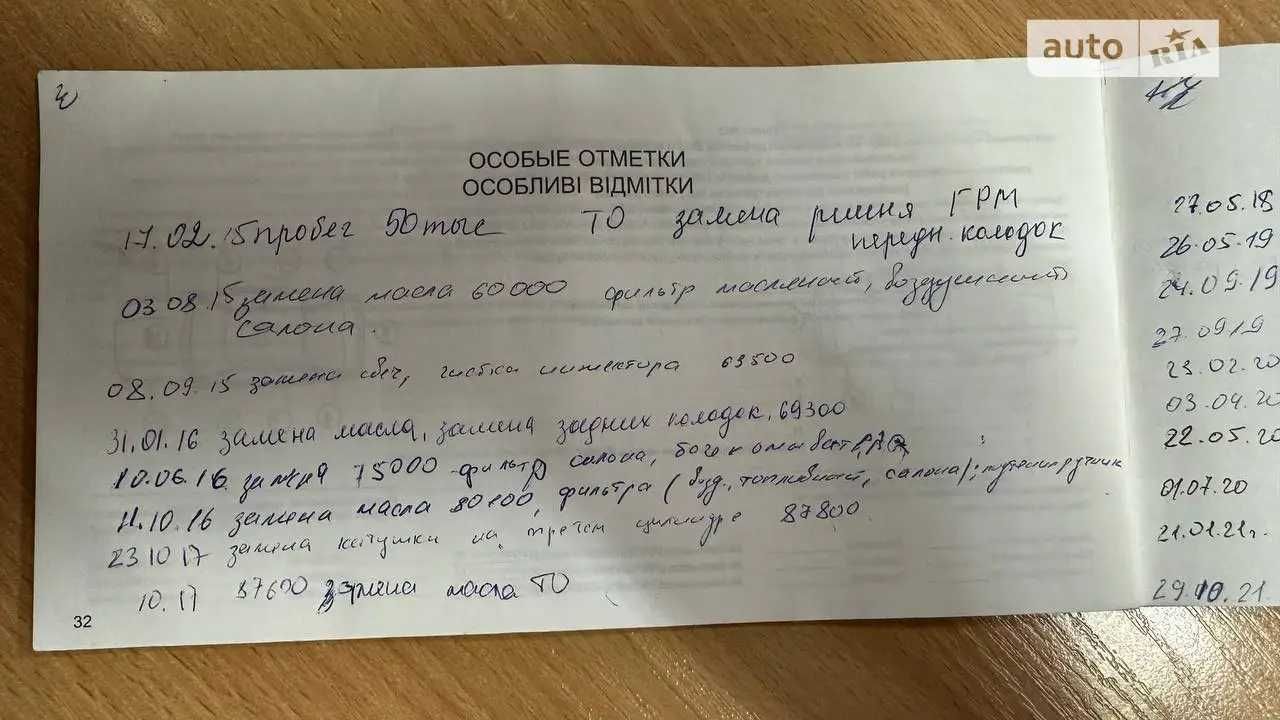 auto RIA
ОСОБЫЕ ОТМЕТКИ
ОСОБЛИВІ ВІДМІТКИ
17.02.15 пробег 50 тыс ТО замена ремня ГРМ
передн. колодок
03.08.15 замена масла 60000 фильтр масляный, воздушный
салона.
08.09.15 замена свеч, чистка инжектора 63500
31.01.16 замена масла, замена задних колодок, 69300
10.06.16 замена 75000 фильтр салона,
11.10.16 замена масла 80100, фильтра (возд., топливный, салона);
23 10 17 замена катушки на третем цилиндре 87800.
10.17 87600 замена масла ТО
32
27.05.18
26.05.19
24.09.19
27.09.19
23.02.20
03.04.20
22.05.20
01.07.20
21.01.21г.
29.10.21